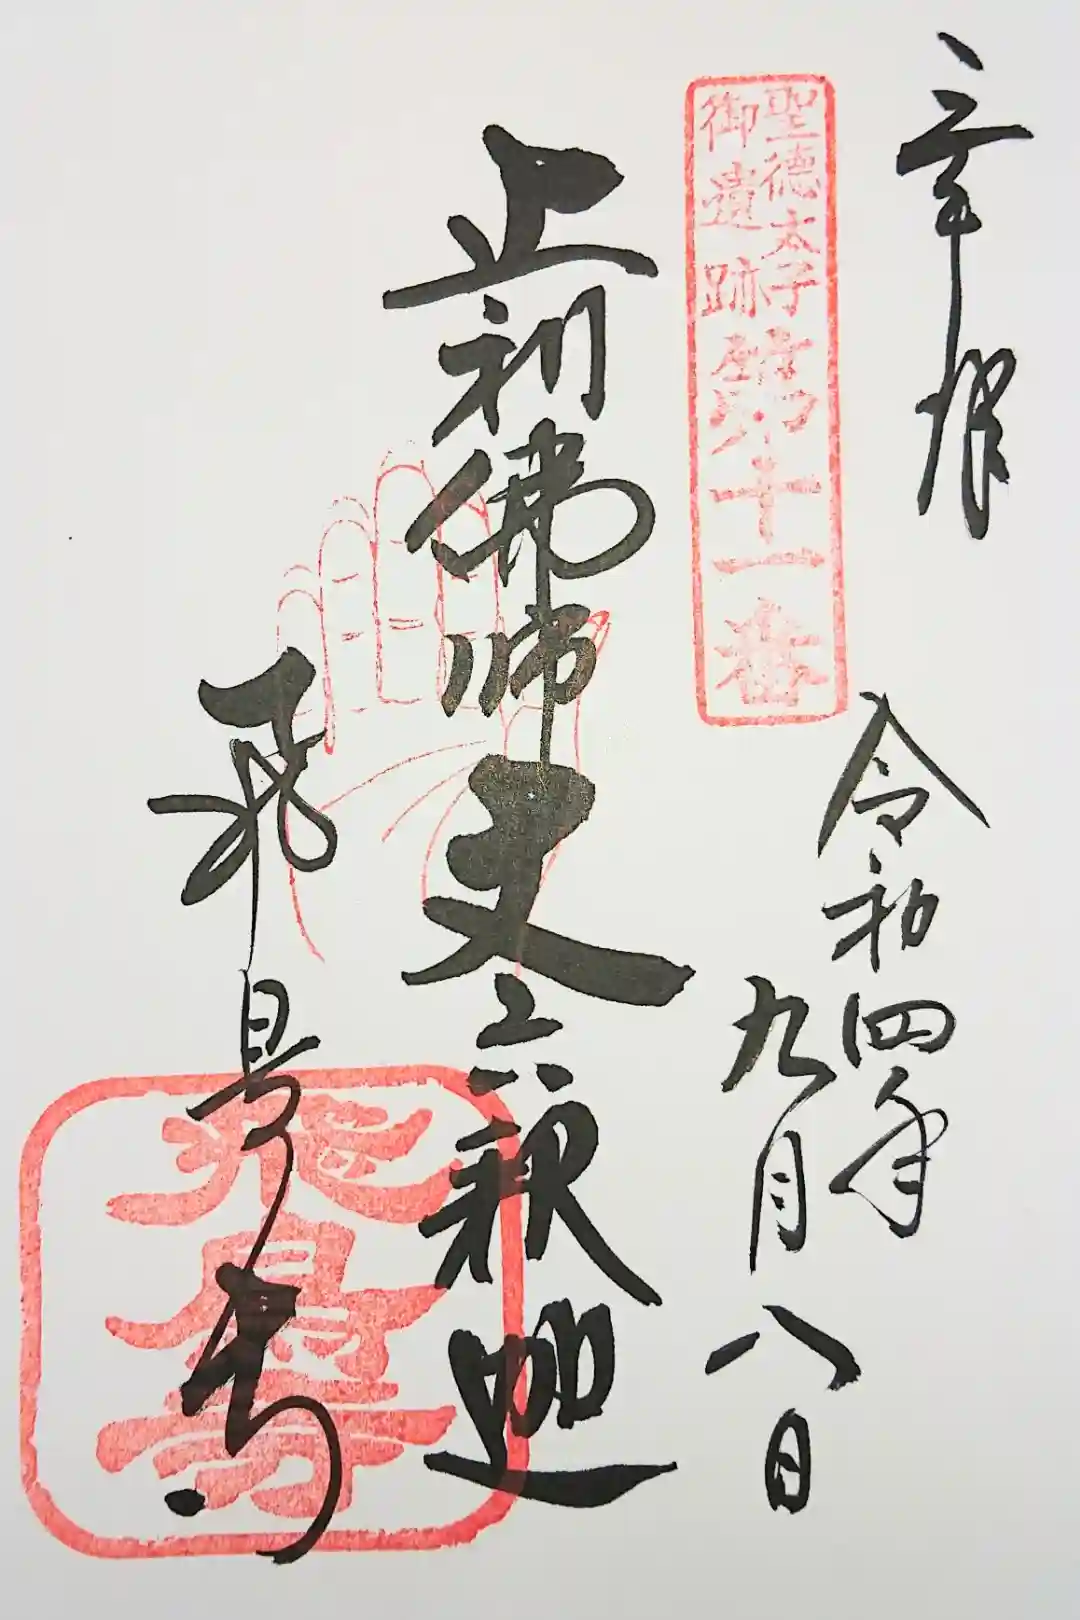 奉拝
聖徳太子
御遺跡
霊場第十一番
令和四年
九月八日
止利佛師丈六釈迦
飛鳥寺
飛鳥寺